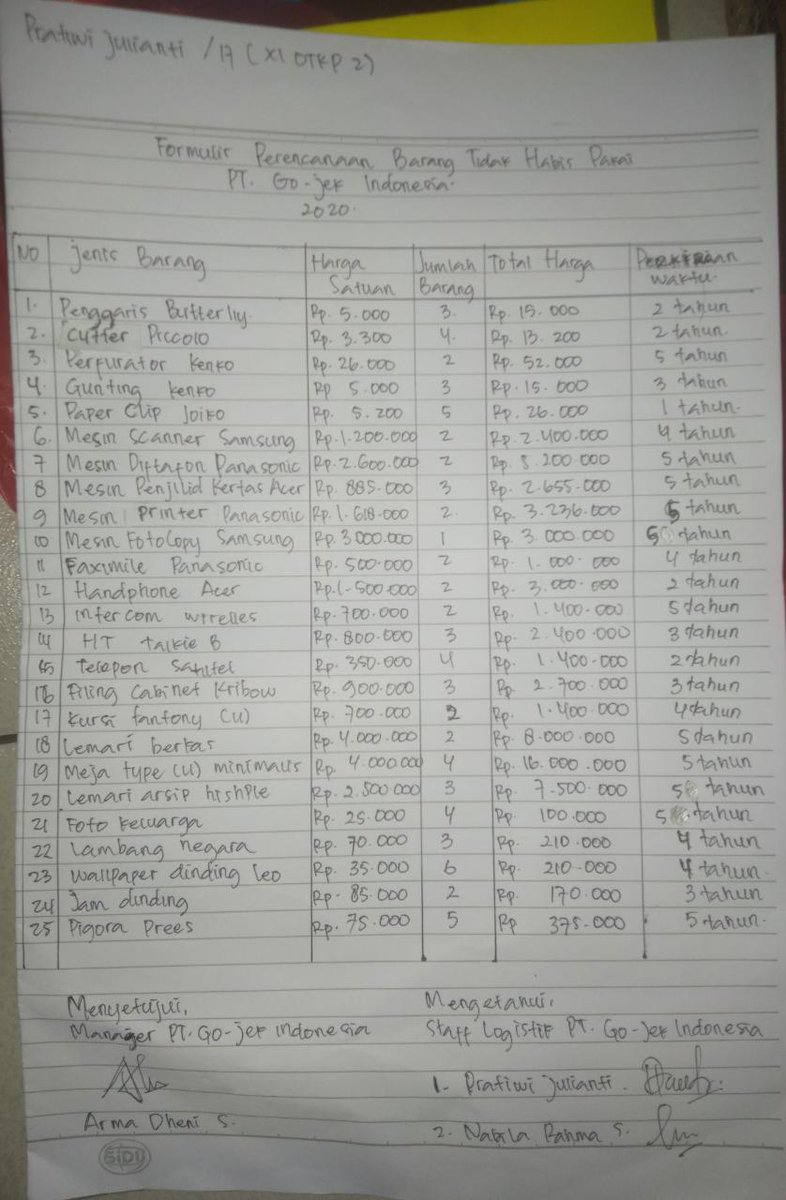 Pratiwi Julianti / 17 ( XI OTKP 2)
Formulir Perencanaan Barang Tidak Habis Pakai
PT. Go-jek Indonesia.
2020.
NO Jenis Barang Harga Satuan Jumlah Barang Total Harga Perkiraan waktu.
1. Penggaris Butterly Rp. 5.000 3. Rp. 15.000 2 tahun
2. Cutter Piccolo Rp. 3.300 4. Rp. 13.200 2 tahun.
3. Perfurator Kenko Rp. 26.000 2 Rp. 52.000 5 tahun
4. Gunting kenko Rp 5.000 3 Rp. 15.000 3 tahun
5. Paper Clip Joiko Rp. 5.200 5 Rp. 26.000 1 tahun.
6. Mesin Scanner Samsung Rp. 1.200.000 2 Rp. 2.400.000 4 tahun
7 Mesin Diktafon Panasonic Rp. 2.600.000 2 Rp 5.200.000 5 tahun
8 Mesin Penjilid Kertas Acer Rp. 885.000 3 Rp. 2.655.000 5 tahun
9 Mesin Printer Panasonic Rp. 1.618.000 2. Rp. 3.236.000 5 tahun
10 Mesin FotoCopy Samsung Rp. 3000.000 1 Rp. 3.000.000 5 tahun
11 Faximile Panasonic Rp. 500.000 2 Rp. 1.000.000 4 tahun
12 Handphone Acer Rp. 1.500.000 2 Rp. 3.000.000 2 tahun
13 Intercom wirelles Rp. 700.000 2 Rp. 1.400.000 5 tahun
14 HT talkie B Rp. 800.000 3 Rp. 2.400.000 3 tahun
15 Telepon Satlitel Rp. 350.000 4 Rp. 1.400.000 2 tahun
16 Filing Cabinet Kribow Rp. 900.000 3 Rp 2.700.000 3 tahun
17 Kursi fantony (U) Rp. 700.000 2 Rp. 1.400.000 4 tahun
18 Lemari berkas Rp. 4.000.000 2 Rp 8.000.000 5 tahun
19 Meja type (U) minimalis Rp. 4.000.000 4 Rp. 16.000.000 5 tahun
20 Lemari arsip hishple Rp. 2.500 000 3 Rp. 7.500.000 5 tahun
21 Foto Keluarga Rp. 25.000 4 Rp. 100.000 5 tahun
22 Lambang negara Rp. 70.000 3 Rp. 210.000 4 tahun
23 Wallpaper dinding Leo Rp. 35.000 6 Rp. 210.000 4 tahun.
24 Jam dinding Rp. 85.000 2 Rp. 170.000 3 tahun
25 Pigora Prees Rp. 75.000 5 Rp 375.000 5 tahun.
Menyetujui, Mengetahui,
Manager PT. Go-jek Indonesia Staff Logistik PT. Go-jek Indonesia
1. Pratiwi Julianti.
Arma Dheni S. 2. Nabila Rahma S.
SIDU